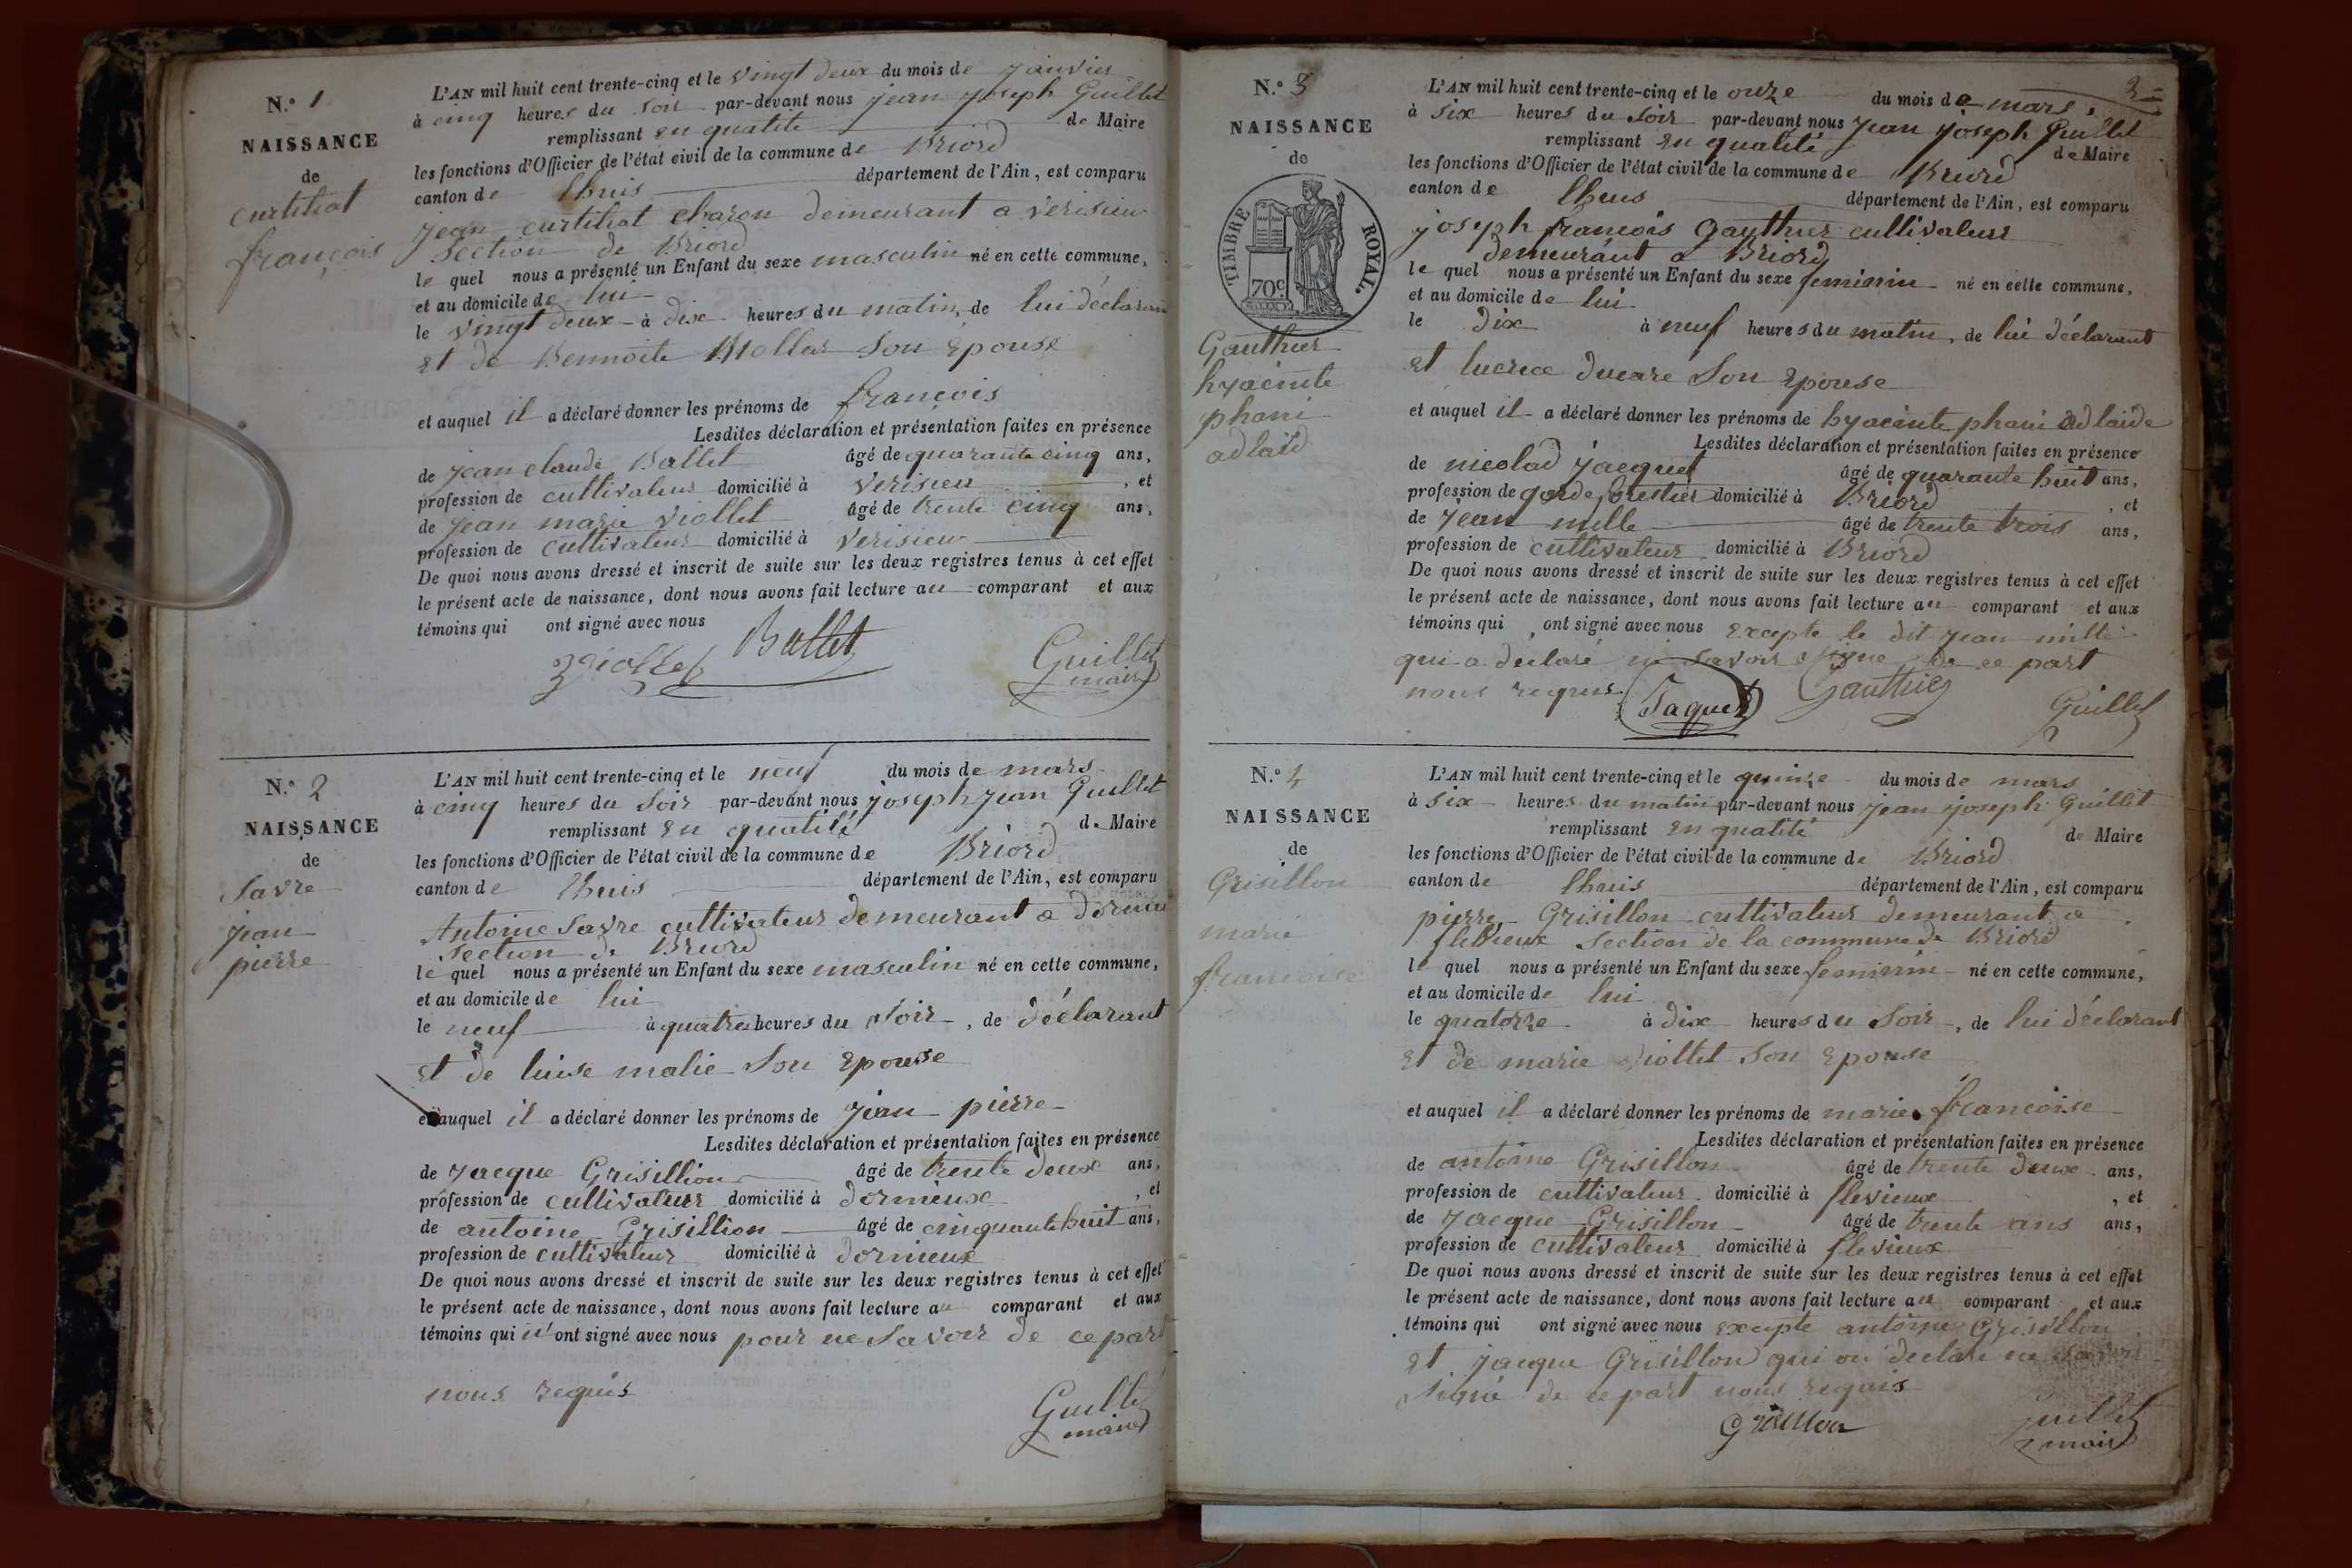 N.° 1
NAISSANCE
de
curtihat
françois
L'AN mil huit cent trente-cinq et le vingt deux du mois de janvier
à cinq heures du soir par-devant nous jean joseph Guillet
remplissant en qualité de Maire
les fonctions d'Officier de l'état civil de la commune de Briord
canton de lhuis département de l'Ain, est comparu
jean curtihat charon demeurant a verisieu
section de Briord
le quel nous a présenté un Enfant du sexe masculin né en cette commune,
et au domicile de lui
le vingt deux à dix heures du matin, de lui déclarant
et de Bennoite Mollar son epouse
et auquel il a déclaré donner les prénoms de françois
Lesdites déclaration et présentation faites en présence
de jean claude Ballet âgé de quarante cinq ans,
profession de cultivateur domicilié à verisieu, et
de jean marie viollet âgé de trente cinq ans,
profession de cultivateur domicilié à verisieu
De quoi nous avons dressé et inscrit de suite sur les deux registres tenus à cet effet
le présent acte de naissance, dont nous avons fait lecture au comparant et aux
témoins qui ont signé avec nous
Viollet Ballet Guillet
maire
N.° 2
NAISSANCE
de
Savre
jean
pierre
L'AN mil huit cent trente-cinq et le neuf du mois de mars
à cinq heures du soir par-devant nous joseph jean Guillet
remplissant en qualité de Maire
les fonctions d'Officier de l'état civil de la commune de Briord
canton de lhuis département de l'Ain, est comparu
Antoine Savre cultivateur demeurant a
section de Briord
le quel nous a présenté un Enfant du sexe masculin né en cette commune,
et au domicile de lui
le neuf à quatre heures du soir, de déclarant
et de luise malie son epouse
et auquel il a déclaré donner les prénoms de jean pierre
Lesdites déclaration et présentation faites en présence
de jacque Grisillion âgé de trente deux ans,
profession de cultivateur domicilié à dornieux, et
de antoine Grisillion âgé de cinquante huit ans,
profession de cultivateur domicilié à dornieux
De quoi nous avons dressé et inscrit de suite sur les deux registres tenus à cet effet
le présent acte de naissance, dont nous avons fait lecture au comparant et aux
témoins qui n'ont signé avec nous pour ne savoir de ce part
nous requis
Guillet
maire
2
N.° 3
NAISSANCE
de
TIMBRE ROYAL.
70c
Gauthier
hyacinte
phani
adlaid
L'AN mil huit cent trente-cinq et le onze du mois de mars
à six heures du soir par-devant nous jean joseph Guillet
remplissant en qualité de Maire
les fonctions d'Officier de l'état civil de la commune de Briord
canton de lhuis département de l'Ain, est comparu
joseph françois Gauthier cultivateur
demeurant a Briord
le quel nous a présenté un Enfant du sexe feminin né en cette commune,
et au domicile de lui
le dix à neuf heures du matin, de lui déclarant
et lucrece ducare son epouse
et auquel il a déclaré donner les prénoms de hyacinte phani adlaide
Lesdites déclaration et présentation faites en présence
de nicolad jacquet âgé de quarante huit ans,
profession de garde forestier domicilié à Briord, et
de jean mille âgé de trente trois ans,
profession de cultivateur domicilié à Briord
De quoi nous avons dressé et inscrit de suite sur les deux registres tenus à cet effet
le présent acte de naissance, dont nous avons fait lecture au comparant et aux
témoins qui ont signé avec nous excepte le dit jean mille
qui a declaré ne savoir signe de ce part
nous requis. Jaquet Gauthier Guillet
N.° 4
NAISSANCE
de
Grisillon
marie
francoise
L'AN mil huit cent trente-cinq et le quinze du mois de mars
à six heures du matin par-devant nous jean joseph Guillet
remplissant en qualité de Maire
les fonctions d'Officier de l'état civil de la commune de Briord
canton de lhuis département de l'Ain, est comparu
pierre Grisillon cultivateur demeurant a
flevieux section de la commune de Briord
le quel nous a présenté un Enfant du sexe feminin né en cette commune,
et au domicile de lui
le quatorze à dix heures du soir, de lui déclarant
et de marie viollet son epouse
et auquel il a déclaré donner les prénoms de marie francoise
Lesdites déclaration et présentation faites en présence
de antoine Grisillon âgé de trente deux ans,
profession de cultivateur domicilié à flevieux, et
de jacque Grisillon âgé de trente ans ans,
profession de cultivateur domicilié à flevieux
De quoi nous avons dressé et inscrit de suite sur les deux registres tenus à cet effet
le présent acte de naissance, dont nous avons fait lecture au comparant et aux
témoins qui ont signé avec nous excepte antoine Grisillon
et jacque Grisillon qui on declare ne savoir
signé de ce part nous requis
Grisillon Guillet
maire